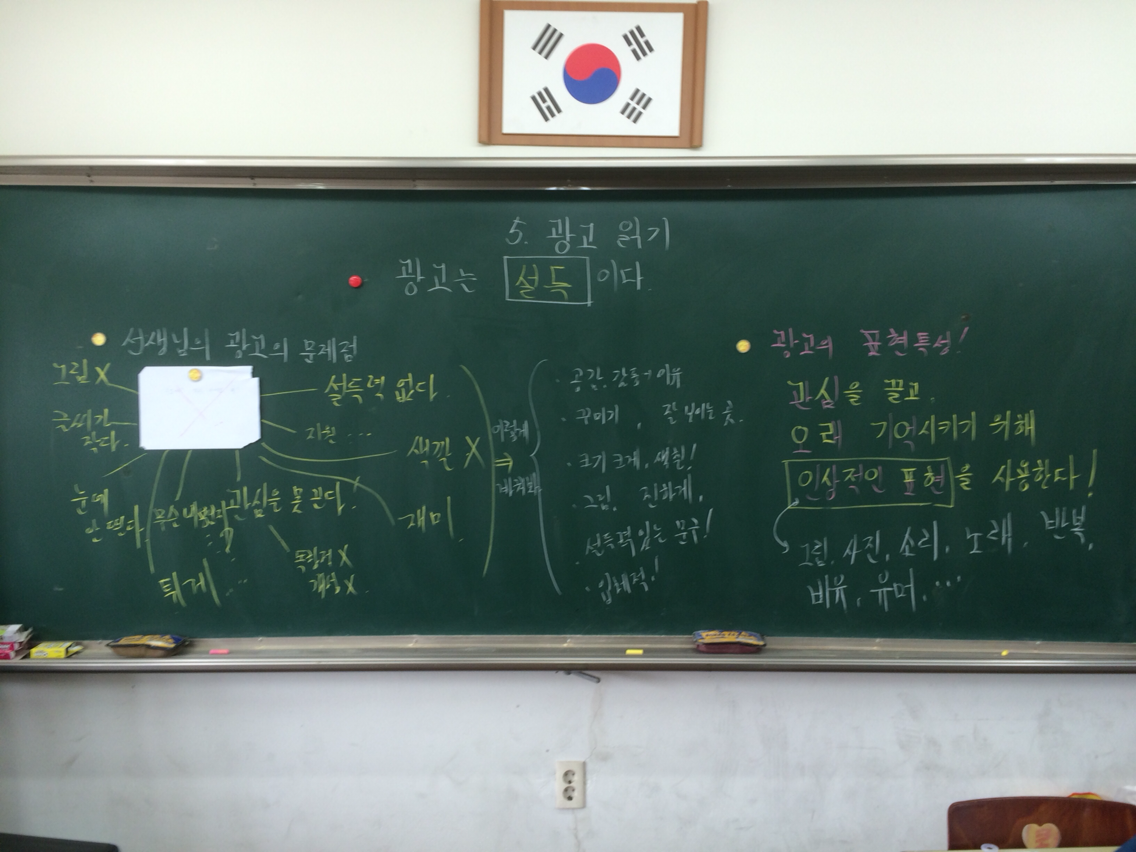 5. 광고 읽기
광고는 설득이다.
선생님의 광고의 문제점
그림 X
글씨가
작다.
눈에
안 띈다.
무슨 내용인지
튀게 ...
관심을 못 끈다!
독창적 X
개성 X
설득력 없다.
지원 ...
색깔 X
재미
이렇게
⇒
바꿔봐
· 공감. 감동 + 이유
· 꾸미기, 잘 보이는 곳.
· 크기 크게, 색칠!
· 그림. 진하게,
· 설득력 있는 문구!
· 입체적!
광고의 표현특성!
관심을 끌고,
오래 기억시키기 위해
인상적인 표현을 사용한다!
그림. 사진, 소리, 노래, 반복,
비유, 유머, ...